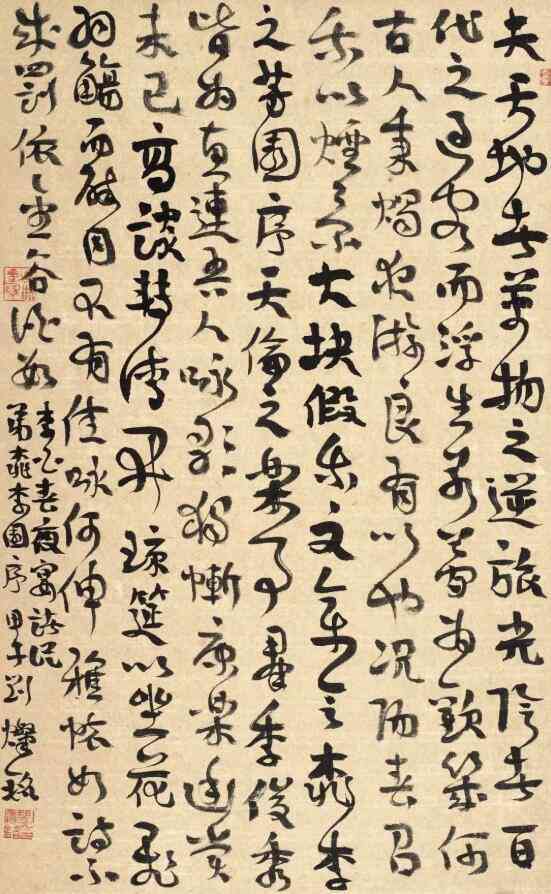 夫天地者萬物之逆旅光陰者百
代之過客而浮生若夢為歡幾何
古人秉燭夜游良有以也況陽春召
我以煙景大块假我文章會桃李
之芳園序天倫之樂事羣季俊秀
皆為惠連吾人咏歌獨慚康樂幽賞
未已高談轉清開瓊筵以坐花飛
羽觴而醉月不有佳咏何伸雅懷如詩不
成罰依金谷酒數
李白春夜宴諸從
弟桃李園序 甲午劉燦銘